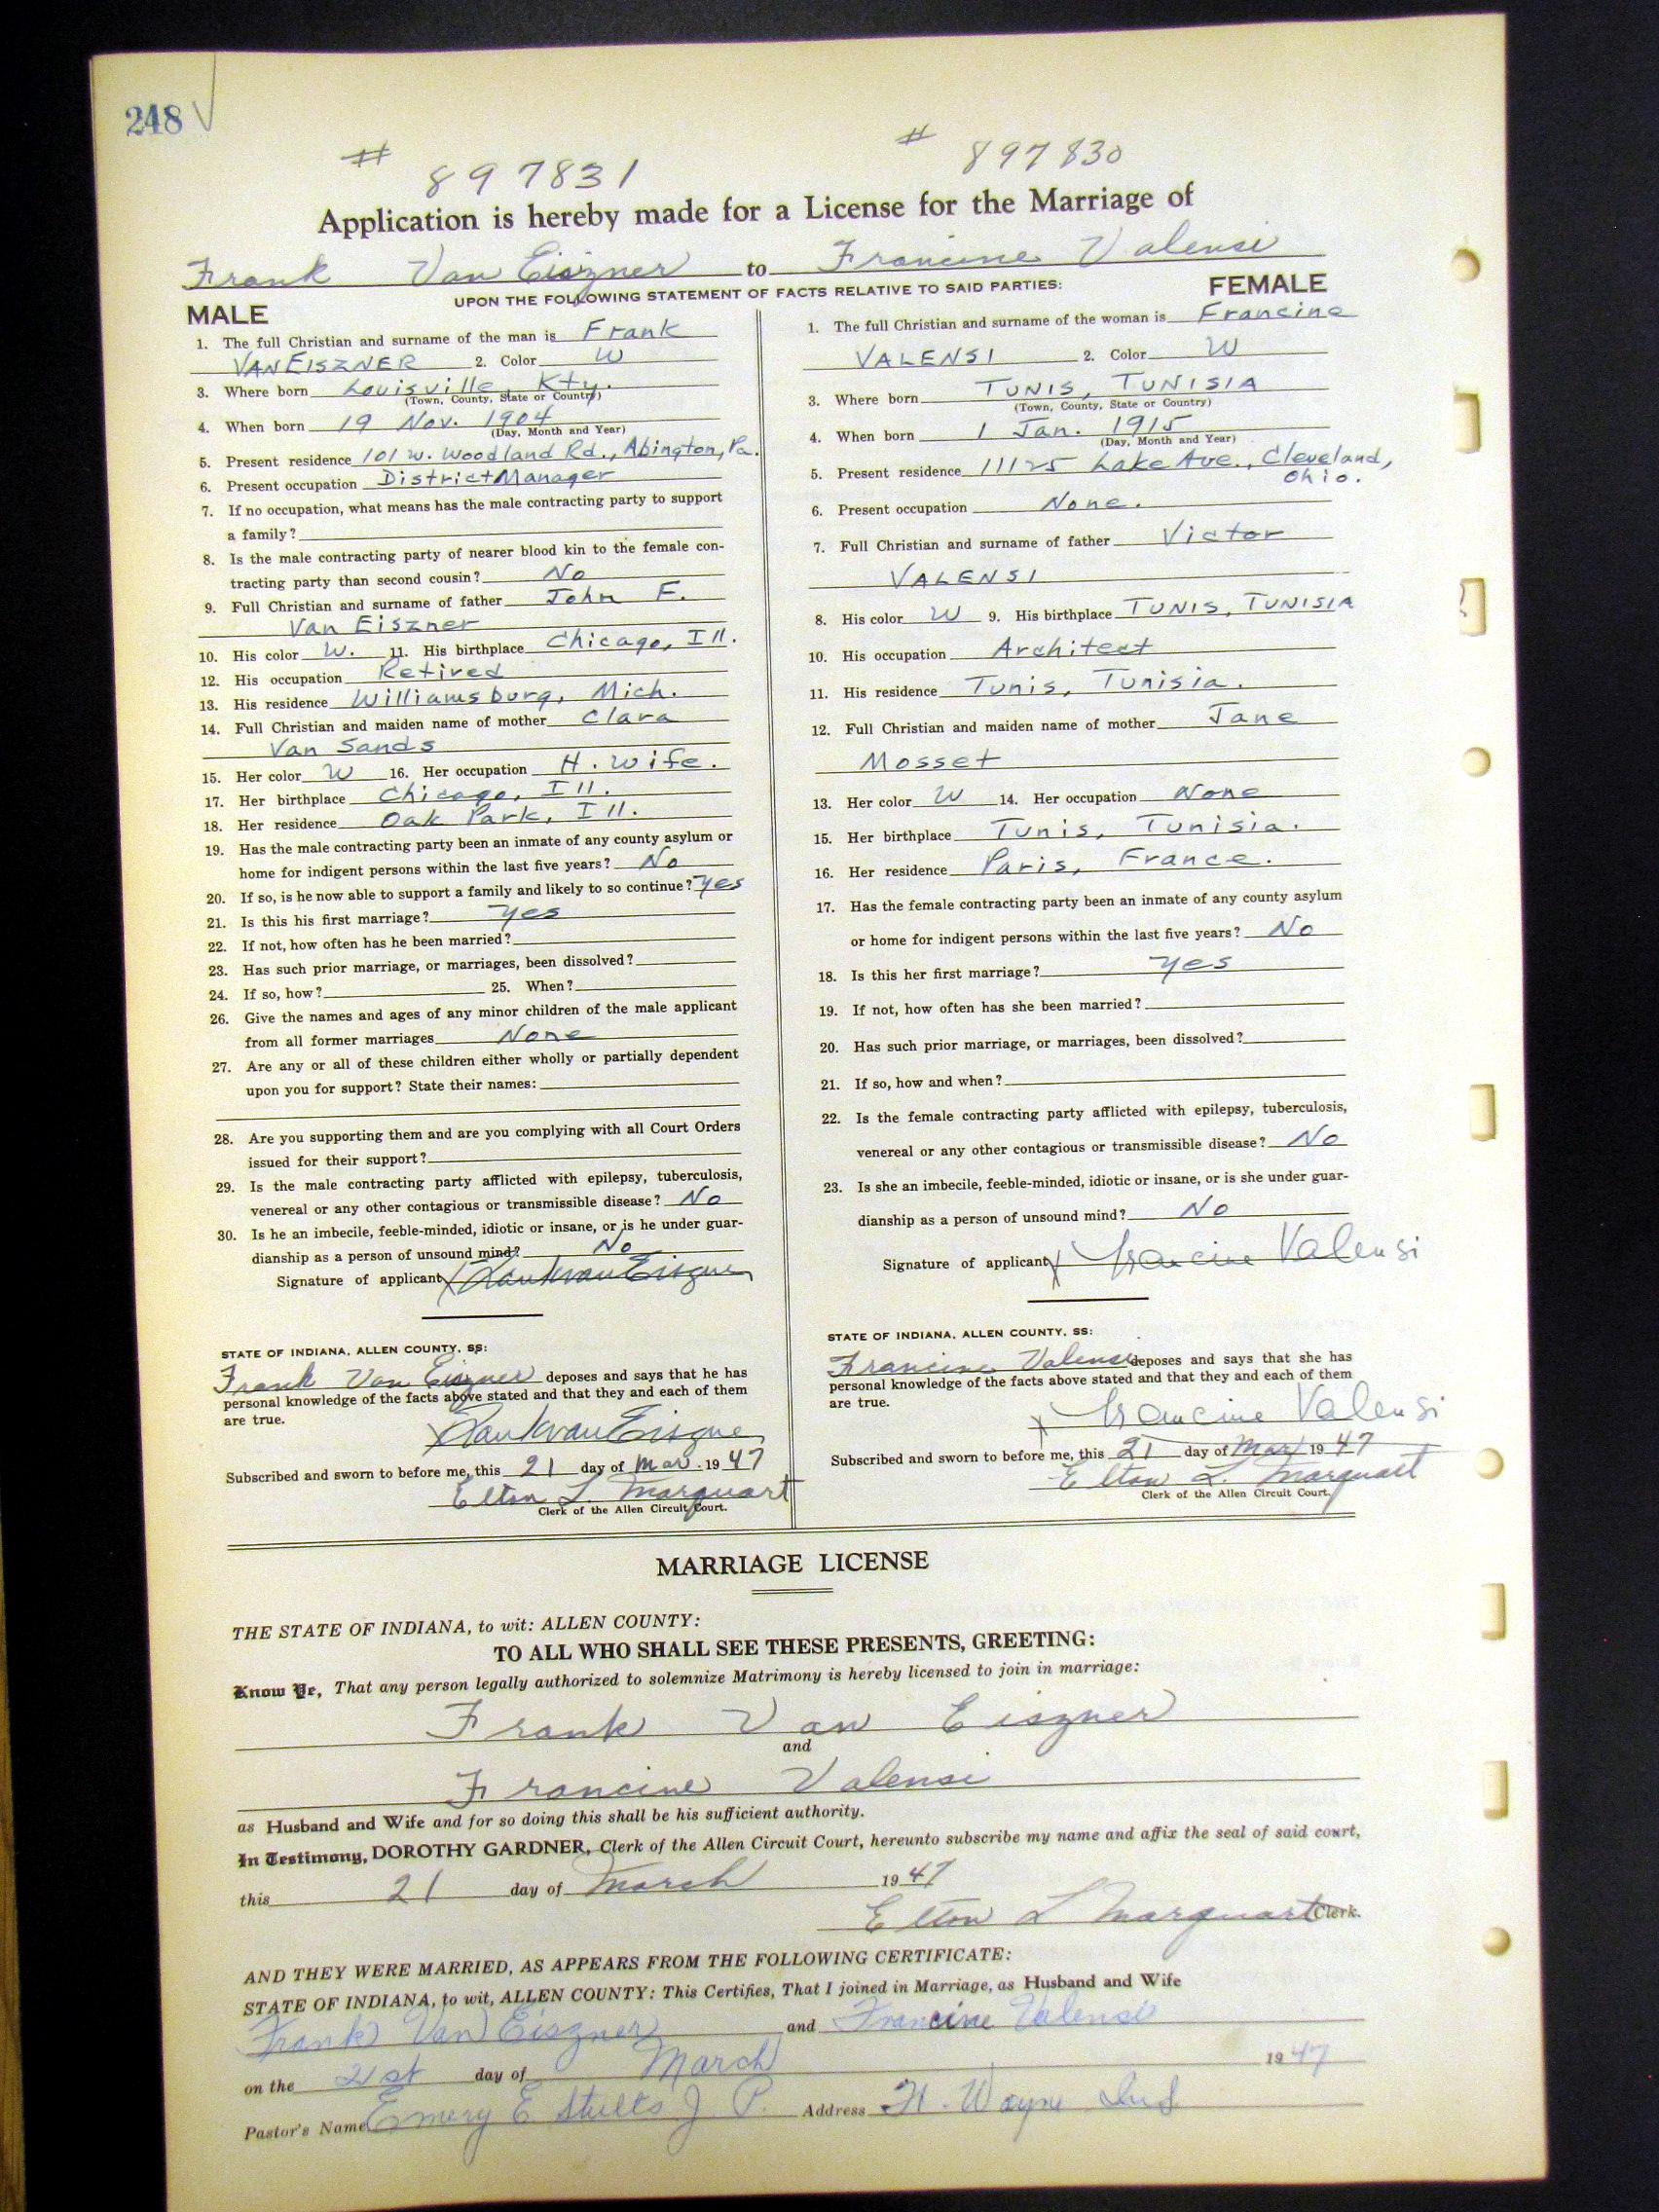 248
# 897831 # 897830
Application is hereby made for a License for the Marriage of
Frank Van Eiszner to Francine Valensi
UPON THE FOLLOWING STATEMENT OF FACTS RELATIVE TO SAID PARTIES:
MALE
1. The full Christian and surname of the man is Frank
VAN EISZNER 2. Color W
3. Where born Louisville, Kty.
(Town, County, State or Country)
4. When born 19 Nov. 1904
(Day, Month and Year)
5. Present residence 101 W. Woodland Rd., Abington, Pa.
6. Present occupation District Manager
7. If no occupation, what means has the male contracting party to support
a family?
8. Is the male contracting party of nearer blood kin to the female con-
tracting party than second cousin? No
9. Full Christian and surname of father John F.
Van Eiszner
10. His color W. 11. His birthplace Chicago, Ill.
12. His occupation Retired
13. His residence Williamsburg, Mich.
14. Full Christian and maiden name of mother Clara
Van Sands
15. Her color W 16. Her occupation H. Wife.
17. Her birthplace Chicago, Ill.
18. Her residence Oak Park, Ill.
19. Has the male contracting party been an inmate of any county asylum or
home for indigent persons within the last five years? No
20. If so, is he now able to support a family and likely to so continue? Yes
21. Is this his first marriage? Yes
22. If not, how often has he been married?
23. Has such prior marriage, or marriages, been dissolved?
24. If so, how? 25. When?
26. Give the names and ages of any minor children of the male applicant
from all former marriages None
27. Are any or all of these children either wholly or partially dependent
upon you for support? State their names:
28. Are you supporting them and are you complying with all Court Orders
issued for their support?
29. Is the male contracting party afflicted with epilepsy, tuberculosis,
venereal or any other contagious or transmissible disease? No
30. Is he an imbecile, feeble-minded, idiotic or insane, or is he under guar-
dianship as a person of unsound mind? No
Signature of applicant X Frank van Eiszner
STATE OF INDIANA, ALLEN COUNTY, SS:
Frank Van Eiszner deposes and says that he has
personal knowledge of the facts above stated and that they and each of them
are true.
X Frank van Eiszner
Subscribed and sworn to before me, this 21 day of Mar. 1947
Elton L. Marquart
Clerk of the Allen Circuit Court.
FEMALE
1. The full Christian and surname of the woman is Francine
VALENSI 2. Color W
3. Where born TUNIS, TUNISIA
(Town, County, State or Country)
4. When born 1 Jan. 1915
(Day, Month and Year)
5. Present residence 11125 Lake Ave., Cleveland,
Ohio.
6. Present occupation None.
7. Full Christian and surname of father Victor
VALENSI
8. His color W 9. His birthplace TUNIS, TUNISIA
10. His occupation Architect
11. His residence Tunis, Tunisia.
12. Full Christian and maiden name of mother Jane
Mosset
13. Her color W 14. Her occupation None
15. Her birthplace Tunis, Tunisia.
16. Her residence Paris, France.
17. Has the female contracting party been an inmate of any county asylum
or home for indigent persons within the last five years? No
18. Is this her first marriage? Yes
19. If not, how often has she been married?
20. Has such prior marriage, or marriages, been dissolved?
21. If so, how and when?
22. Is the female contracting party afflicted with epilepsy, tuberculosis,
venereal or any other contagious or transmissible disease? No
23. Is she an imbecile, feeble-minded, idiotic or insane, or is she under guar-
dianship as a person of unsound mind? No
Signature of applicant X Francine Valensi
STATE OF INDIANA, ALLEN COUNTY, SS:
Francine Valensi deposes and says that she has
personal knowledge of the facts above stated and that they and each of them
are true.
X Francine Valensi
Subscribed and sworn to before me, this 21 day of Mar 1947
Elton L. Marquart
Clerk of the Allen Circuit Court.
MARRIAGE LICENSE
THE STATE OF INDIANA, to wit: ALLEN COUNTY:
TO ALL WHO SHALL SEE THESE PRESENTS, GREETING:
Know Ye, That any person legally authorized to solemnize Matrimony is hereby licensed to join in marriage:
Frank Van Eiszner
and
Francine Valensi
as Husband and Wife and for so doing this shall be his sufficient authority.
In Testimony, DOROTHY GARDNER, Clerk of the Allen Circuit Court, hereunto subscribe my name and affix the seal of said court,
this 21 day of March 1947
Elton L Marquart Clerk.
AND THEY WERE MARRIED, AS APPEARS FROM THE FOLLOWING CERTIFICATE:
STATE OF INDIANA, to wit, ALLEN COUNTY: This Certifies, That I joined in Marriage, as Husband and Wife
Frank Van Eiszner and Francine Valensi
on the 21st day of March 1947
Pastor's Name Emery E Stults J. P. Address Ft. Wayne Ind